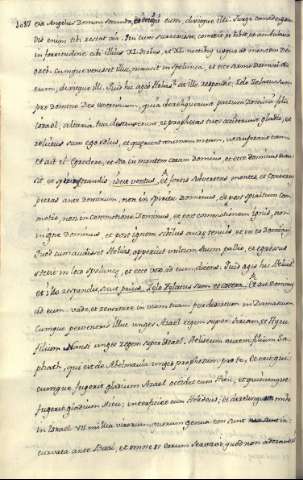 1087 eia Angelus Domini secunda, eum, dixitque illi. Surge comede grandis
enim tibi restat via. Qui cum surrexisset, comedit et bibit, et ambulavit
in fortitudine cibi illius XL diebus, et XL noctibus usque ad montem Dei
Oreb. Cumque venisset illuc, mansit in spelunca, et ecce sermo Domini ad
eum, dixitque illi. Quid hic agis Helia? at ille respondit. Zelo Zelatus sum
pro Domino Deo exercituum, quia dereliquerunt pactum Domini filii
Israel, altaria tua destruxerunt, et prophetas tuos occiderunt gladio, et
relictus sum ego solus, et quærunt animam meam, ut auferant eam
et ait ei Egredere, et sta in monte coram Domino et ecce Dominus
transit et spiritus grandis, et fortis subvertens montes, et conterens
petras ante Dominum, non in spiritu Dominus, et post spiritum com
motio, non in commotione Dominus, et post commotionem ignis, non
in igne Dominus et post ignem sibilus auræ tenuis
Quod cum audisset Helias, operuit vultum suum pallio, et egressus
stetit in ostio speluncæ, et ecce vox ad eum dicens. Quid agis hic Helia?
et ille respondit, Zelo Zelatus sum et cetera. Et ait Dominus
ad eum. vade, et revertere in viam tuam per desertum in Damascum
Cumque perveneris illuc unges Azael regem super Siriam, et Hieu
filium Namsi unges regem super Israel, Heliseum autem filium Sa
phath, qui est de Abelmeula unges prophetam pro te, et erit qui
cumque fugerit gladium Azael occidet eum Hieu, et qui cumque
fugerit gladium Hieu, interficiet eum Heliseus, et derelinquam mihi
in Israel VII millia virorum, quorum genua non sunt in
curvata ante Baal, et omne os eorum quod non adoravit